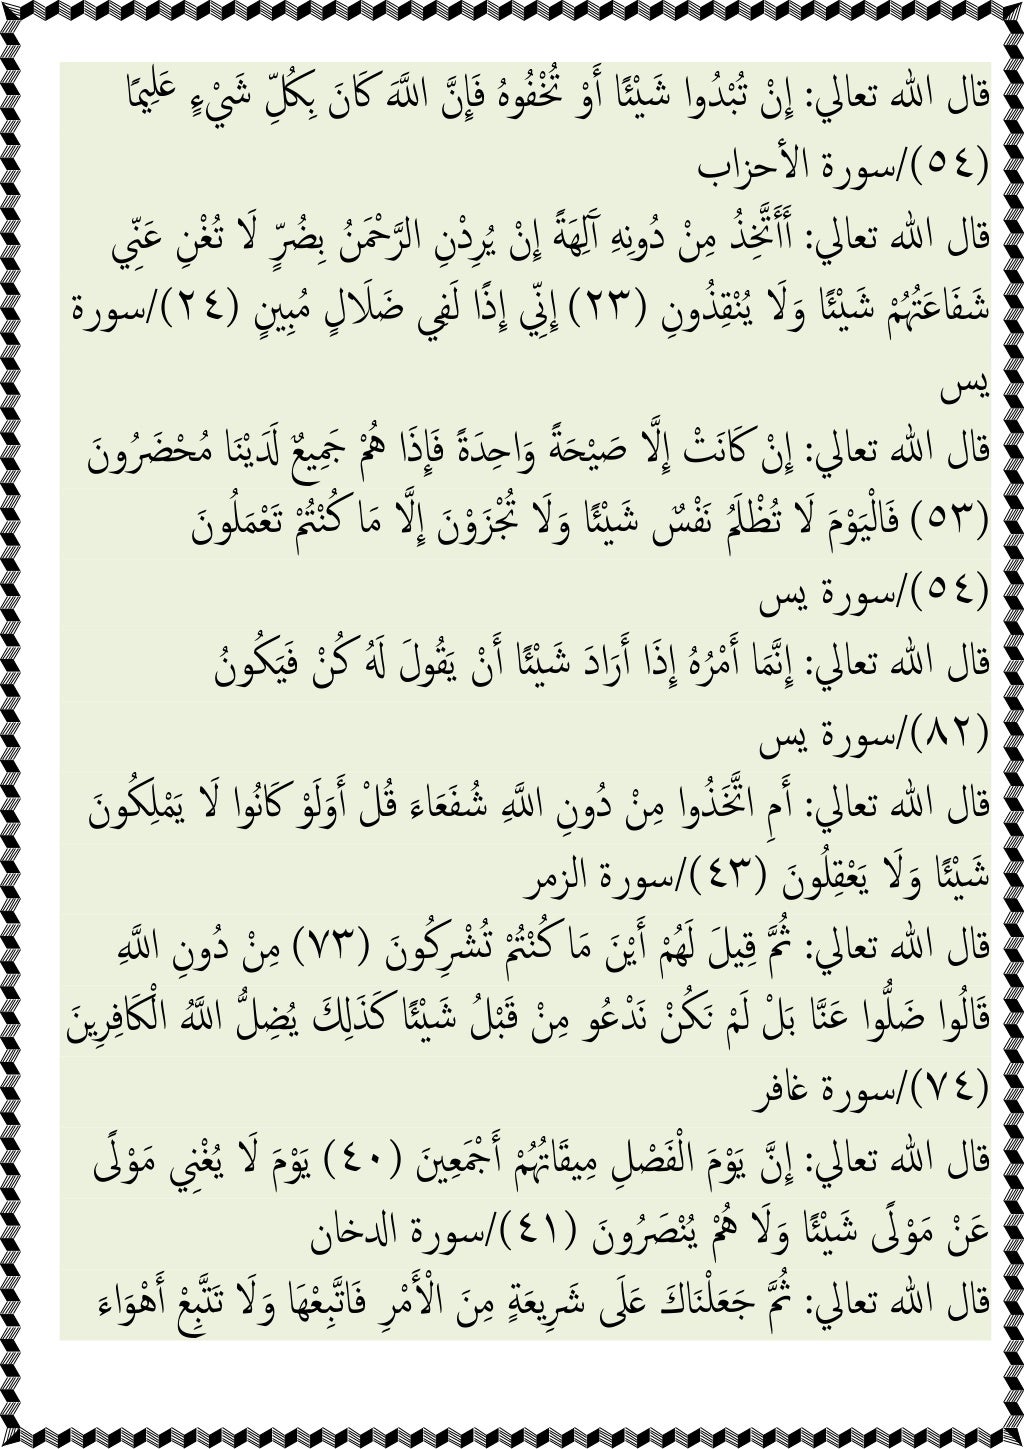 قال الله تعالي: إِنْ تُبْدُوا شَيْئًا أَوْ تُخْفُوهُ فَإِنَّ اللَّهَ كَانَ بِكُلِّ شَيْءٍ عَلِيمًا
(٥٤)/سورة الأحزاب
قال الله تعالي: أَأَتَّخِذُ مِنْ دُونِهِ آَلِهَةً إِنْ يُرِدْنِ الرَّحْمَنُ بِضُرٍّ لَا تُغْنِ عَنِّي
شَفَاعَتُهُمْ شَيْئًا وَلَا يُنْقِذُونِ (٢٣) إِنِّي إِذًا لَفِي ضَلَالٍ مُبِينٍ (٢٤)/سورة
يس
قال الله تعالي: إِنْ كَانَتْ إِلَّا صَيْحَةً وَاحِدَةً فَإِذَا هُمْ جَمِيعٌ لَدَيْنَا مُحْضَرُونَ
(٥٣) فَالْيَوْمَ لَا تُظْلَمُ نَفْسٌ شَيْئًا وَلَا تُجْزَوْنَ إِلَّا مَا كُنْتُمْ تَعْمَلُونَ
(٥٤)/سورة يس
قال الله تعالي: إِنَّمَا أَمْرُهُ إِذَا أَرَادَ شَيْئًا أَنْ يَقُولَ لَهُ كُنْ فَيَكُونُ
(٨٢)/سورة يس
قال الله تعالي: أَمِ اتَّخَذُوا مِنْ دُونِ اللَّهِ شُفَعَاءَ قُلْ أَوَلَوْ كَانُوا لَا يَمْلِكُونَ
شَيْئًا وَلَا يَعْقِلُونَ (٤٣)/سورة الزمر
قال الله تعالي: ثُمَّ قِيلَ لَهُمْ أَيْنَ مَا كُنْتُمْ تُشْرِكُونَ (٧٣) مِنْ دُونِ اللَّهِ
قَالُوا ضَلُّوا عَنَّا بَلْ لَمْ نَكُنْ نَدْعُو مِنْ قَبْلُ شَيْئًا كَذَلِكَ يُضِلُّ اللَّهُ الْكَافِرِينَ
(٧٤)/سورة غافر
قال الله تعالي: إِنَّ يَوْمَ الْفَصْلِ مِيقَاتُهُمْ أَجْمَعِينَ (٤٠) يَوْمَ لَا يُغْنِي مَوْلًى
عَنْ مَوْلًى شَيْئًا وَلَا هُمْ يُنْصَرُونَ (٤١)/سورة الدخان
قال الله تعالي: ثُمَّ جَعَلْنَاكَ عَلَى شَرِيعَةٍ مِنَ الْأَمْرِ فَاتَّبِعْهَا وَلَا تَتَّبِعْ أَهْوَاءَ